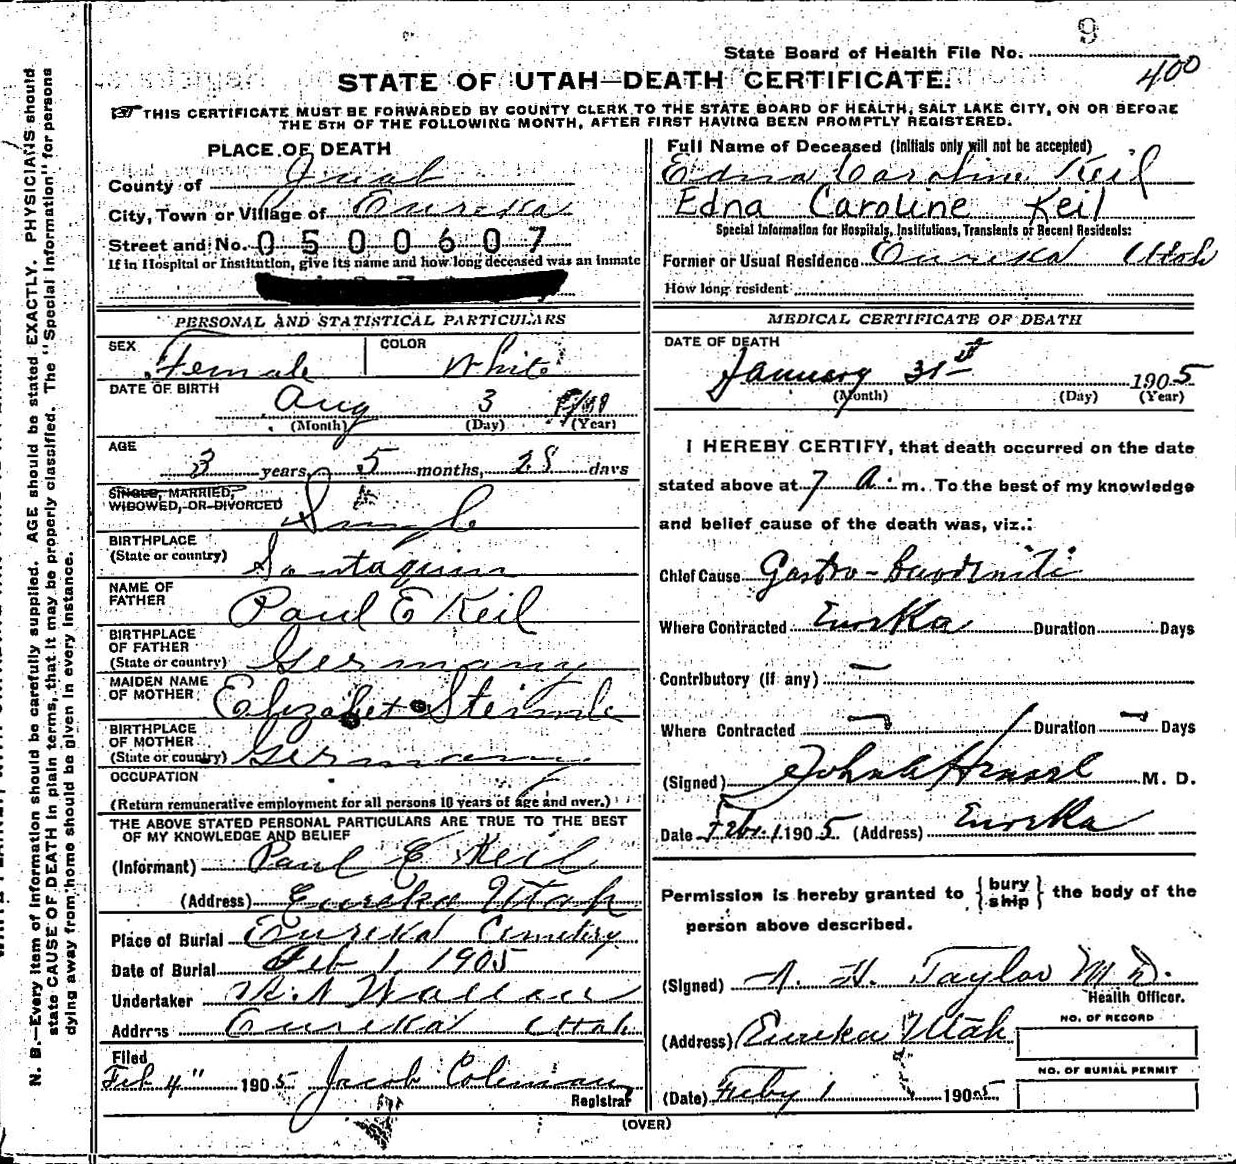 9
State Board of Health File No.
400
STATE OF UTAH—DEATH CERTIFICATE.
THIS CERTIFICATE MUST BE FORWARDED BY COUNTY CLERK TO THE STATE BOARD OF HEALTH, SALT LAKE CITY, ON OR BEFORE
THE 5TH OF THE FOLLOWING MONTH, AFTER FIRST HAVING BEEN PROMPTLY REGISTERED.
N. B.—Every item of information should be carefully supplied. AGE should be stated EXACTLY. PHYSICIANS should
state CAUSE OF DEATH in plain terms, that it may be properly classified. The "Special Information" for persons
dying away from home should be given in every instance.
PLACE OF DEATH
County of Juab
City, Town or Village of Eureka
Street and No. 0500607
If in Hospital or Institution, give its name and how long deceased was an inmate
PERSONAL AND STATISTICAL PARTICULARS
SEX Female COLOR White
DATE OF BIRTH Aug 3
(Month) (Day) (Year)
AGE 3 years, 5 months, 28 days
SINGLE, MARRIED,
WIDOWED, OR DIVORCED Single
BIRTHPLACE
(State or country) Santaquin
NAME OF
FATHER Paul E Keil
BIRTHPLACE
OF FATHER
(State or country) Germany
MAIDEN NAME
OF MOTHER Elizabet
BIRTHPLACE
OF MOTHER
(State or country) Germany
OCCUPATION
(Return remunerative employment for all persons 10 years of age and over.)
THE ABOVE STATED PERSONAL PARTICULARS ARE TRUE TO THE BEST
OF MY KNOWLEDGE AND BELIEF
(Informant) Paul E Keil
(Address) Eureka Utah
Place of Burial Eureka Cemetery
Date of Burial Feb 1 1905
Undertaker
Address Eureka Utah
Filed
Feb 4" 1905 Jacob Coleman
Registrar
Full Name of Deceased (Initials only will not be accepted)
Edna Caroline Keil
Edna Caroline Keil
Special Information for Hospitals, Institutions, Transients or Recent Residents:
Former or Usual Residence Eureka Utah
How long resident
MEDICAL CERTIFICATE OF DEATH
DATE OF DEATH
January 31st 1905
(Month) (Day) (Year)
I HEREBY CERTIFY, that death occurred on the date
stated above at 7 A. m. To the best of my knowledge
and belief cause of the death was, viz.:
Chief Cause Gastro-
Where Contracted Eureka Duration Days
Contributory (if any) —
Where Contracted — Duration — Days
(Signed) M. D.
Date Febr. 1. 1905 (Address) Eureka
Permission is hereby granted to { bury ship } the body of the
person above described.
(Signed) Taylor M D.
Health Officer.
NO. OF RECORD
(Address) Eureka Utah
NO. OF BURIAL PERMIT
(Date) Feby 1 1905
(OVER)